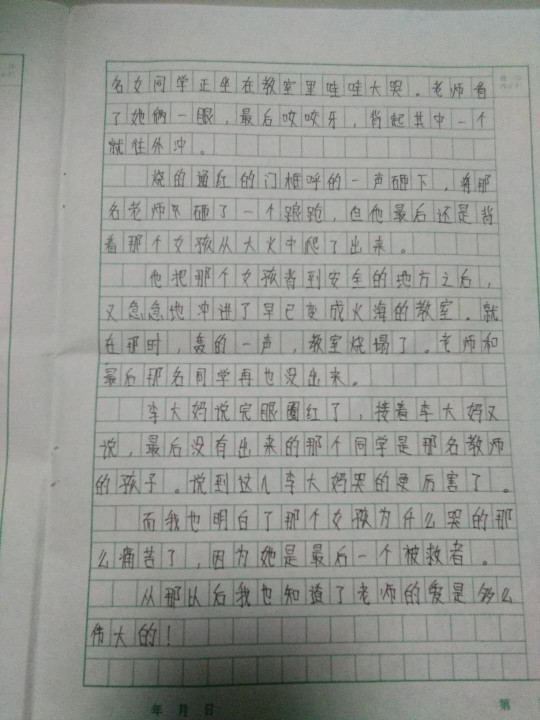 名女同学正坐在教室里哇哇大哭。老师看
了她俩一眼,最后咬咬牙,背起其中一个
就往外冲。
烧的通红的门框呼的一声砸下,将那
名老师又砸了一个踉跄,但他最后还是背
着那个女孩从大火中爬了出来。
他把那个女孩背到安全的地方之后,
又急急地冲进了早已变成火海的教室。就
在那时,轰的一声,教室烧塌了。老师和
最后那名同学再也没出来。
李大妈说完眼圈红了,接着李大妈又
说,最后没有出来的那个同学是那名教师
的孩子。说到这儿李大妈哭的更厉害了。
而我也明白了那个女孩为什么哭的那
么痛苦了,因为她是最后一个被救者。
从那以后我也知道了老师的爱是多么
伟大的!
年 月 日
第